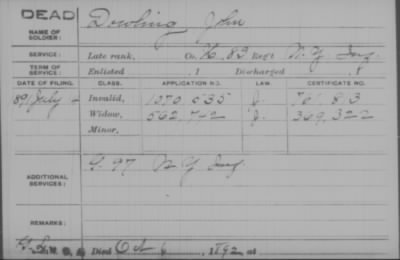 DEAD
NAME OF SOLDIER: Dowling John
SERVICE: Late rank, Co. K, 82 Reg't N.Y. Inf.
TERM OF SERVICE: Enlisted , 1 Discharged , 1
DATE OF FILING. CLASS. APPLICATION NO. LAW. CERTIFICATE NO.
Invalid, 1050.035 J.
Widow, J. 369,322
Minor,
ADDITIONAL SERVICES: 97 N.Y. Inf.
REMARKS:
Died Oct 6, 1892, at